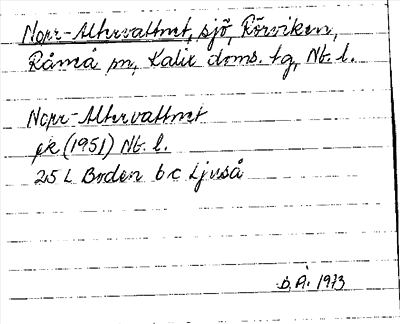 Norr-Altervattnet, sjö, Rörviken,
Råneå sn, Kalix doms. tg, Nb. l.
Norr-Altervattnet
ek (1951) Nb. l.
25 L Boden b c Ljuså
b. Å. 1973